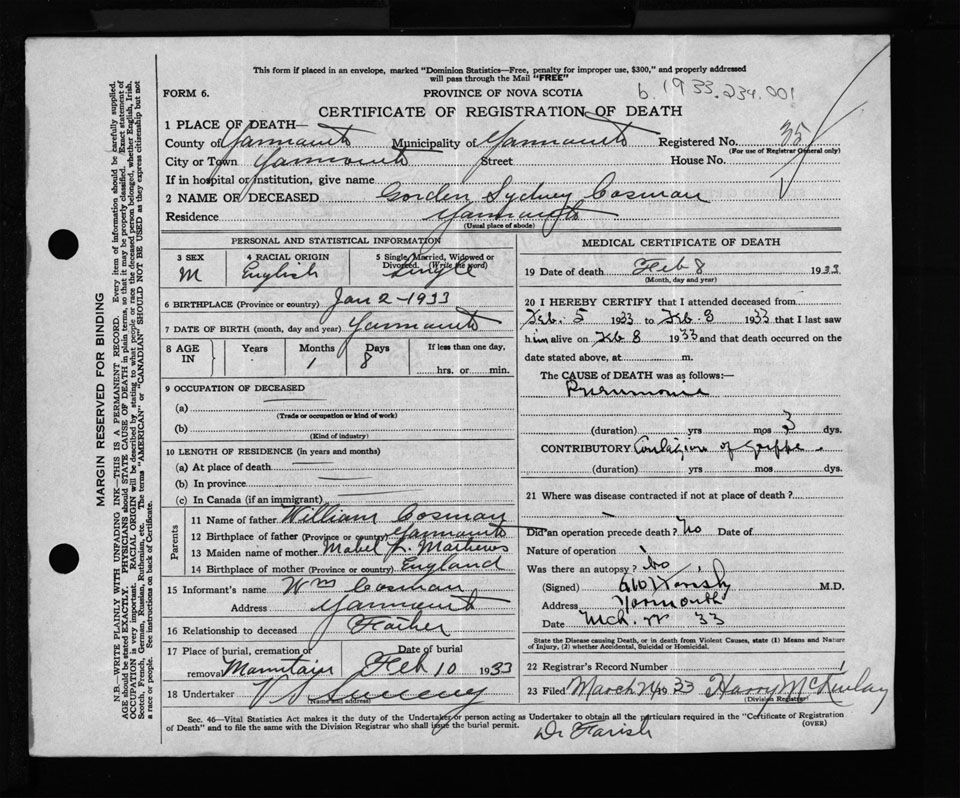 This form if placed in an envelope, marked "Dominion Statistics—Free, penalty for improper use, $300," and properly addressed
will pass through the Mail "FREE"
FORM 6.
PROVINCE OF NOVA SCOTIA
6.1933.234.001
CERTIFICATE OF REGISTRATION OF DEATH
1 PLACE OF DEATH—
County of Yarmouth Municipality of Yarmouth Registered No. 35
(For use of Registrar General only)
City or Town Yarmouth Street House No.
If in hospital or institution, give name
2 NAME OF DECEASED Gorden Sydney Cosman
Residence Yarmouth
(Usual place of abode)
PERSONAL AND STATISTICAL INFORMATION
3 SEX 4 RACIAL ORIGIN 5 Single, Married, Widowed or
Divorced. (Write the word)
M English Single
6 BIRTHPLACE (Province or country) Jan 2 - 1933
7 DATE OF BIRTH (month, day and year) Yarmouth
8 AGE IN Years Months Days If less than one day,
1 8 hrs. or min.
9 OCCUPATION OF DECEASED
(a)
(Trade or occupation or kind of work)
(b)
(Kind of industry)
10 LENGTH OF RESIDENCE (in years and months)
(a) At place of death
(b) In province
(c) In Canada (if an immigrant)
Parents
11 Name of father William Cosman
12 Birthplace of father (Province or country) Yarmouth
13 Maiden name of mother Mabel L. Mathews
14 Birthplace of mother (Province or country) England
15 Informant's name Wm Cosman
Address Yarmouth
16 Relationship to deceased Father
17 Place of burial, cremation or Date of burial
removal Feb 10 1933
18 Undertaker V S Sweeny
(Name and address)
MEDICAL CERTIFICATE OF DEATH
19 Date of death Feb 8 1933
(Month, day and year)
20 I HEREBY CERTIFY that I attended deceased from
Feb. 5 1933 to Feb. 8 1933 that I last saw
him alive on Feb 8 1933 and that death occurred on the
date stated above, at m.
The CAUSE of DEATH was as follows:—
Pneumonia
(duration) yrs mos 3 dys.
CONTRIBUTORY Contagion of Grippe
(duration) yrs mos dys.
21 Where was disease contracted if not at place of death?
Did an operation precede death? No Date of
Nature of operation
Was there an autopsy? No
(Signed) M.D.
Address Yarmouth
Date Mch. 33
State the Disease causing Death, or in death from Violent Causes, state (1) Means and Nature
of Injury, (2) whether Accidental, Suicidal or Homicidal.
22 Registrar's Record Number 1
23 Filed March 24 1933 Harry McKinlay
(Division Registrar)
Sec. 46—Vital Statistics Act makes it the duty of the Undertaker or person acting as Undertaker to obtain all the particulars required in the "Certificate of Registration
of Death" and to file the same with the Division Registrar who shall issue the burial permit.
(OVER)
Dr Farish
MARGIN RESERVED FOR BINDING
N.B.—WRITE PLAINLY WITH UNFADING INK—THIS IS A PERMANENT RECORD. Every item of information should be carefully supplied.
AGE should be stated EXACTLY. PHYSICIANS should STATE CAUSE OF DEATH in plain terms, so that it may be properly classified. Exact statement of
OCCUPATION is very important. RACIAL ORIGIN will be described by stating to what people or race the deceased person belonged, whether English, Irish,
Scotch, French, German, Russian, Ruthenian, etc. The terms "AMERICAN" or "CANADIAN" SHOULD NOT BE USED as they express citizenship but not
a race or people. See instructions on back of Certificate.